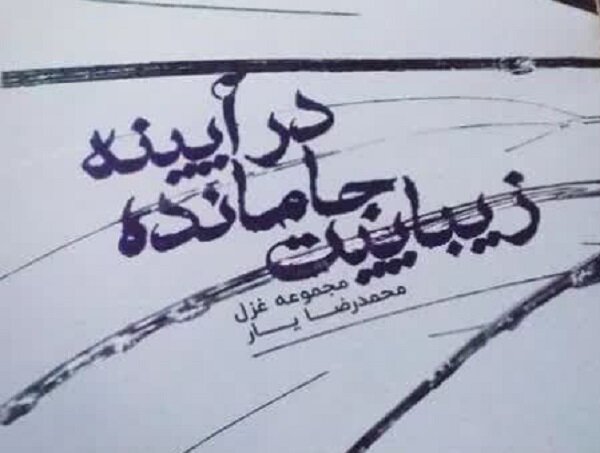 در آیینه
جا مانده
زیباییت
مجموعه غزل
محمدرضا یار